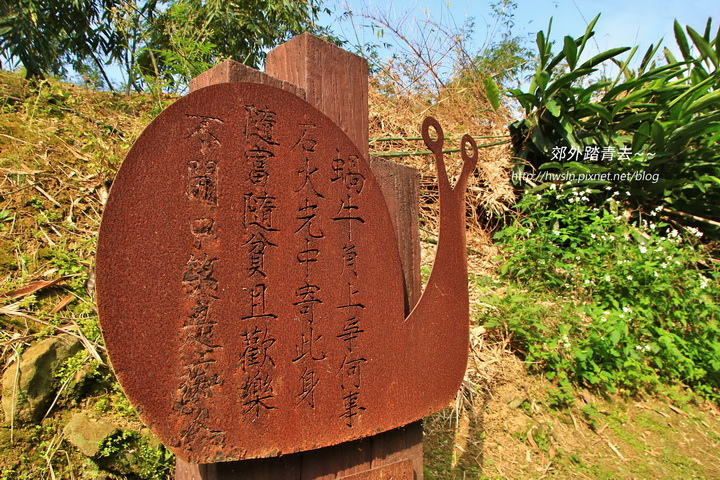 蝸牛角上爭何事
石火光中寄此身
隨富隨貧且歡樂
不開口笑是癡人
郊外踏青去~~
http://hwsln.pixnet.net/blog